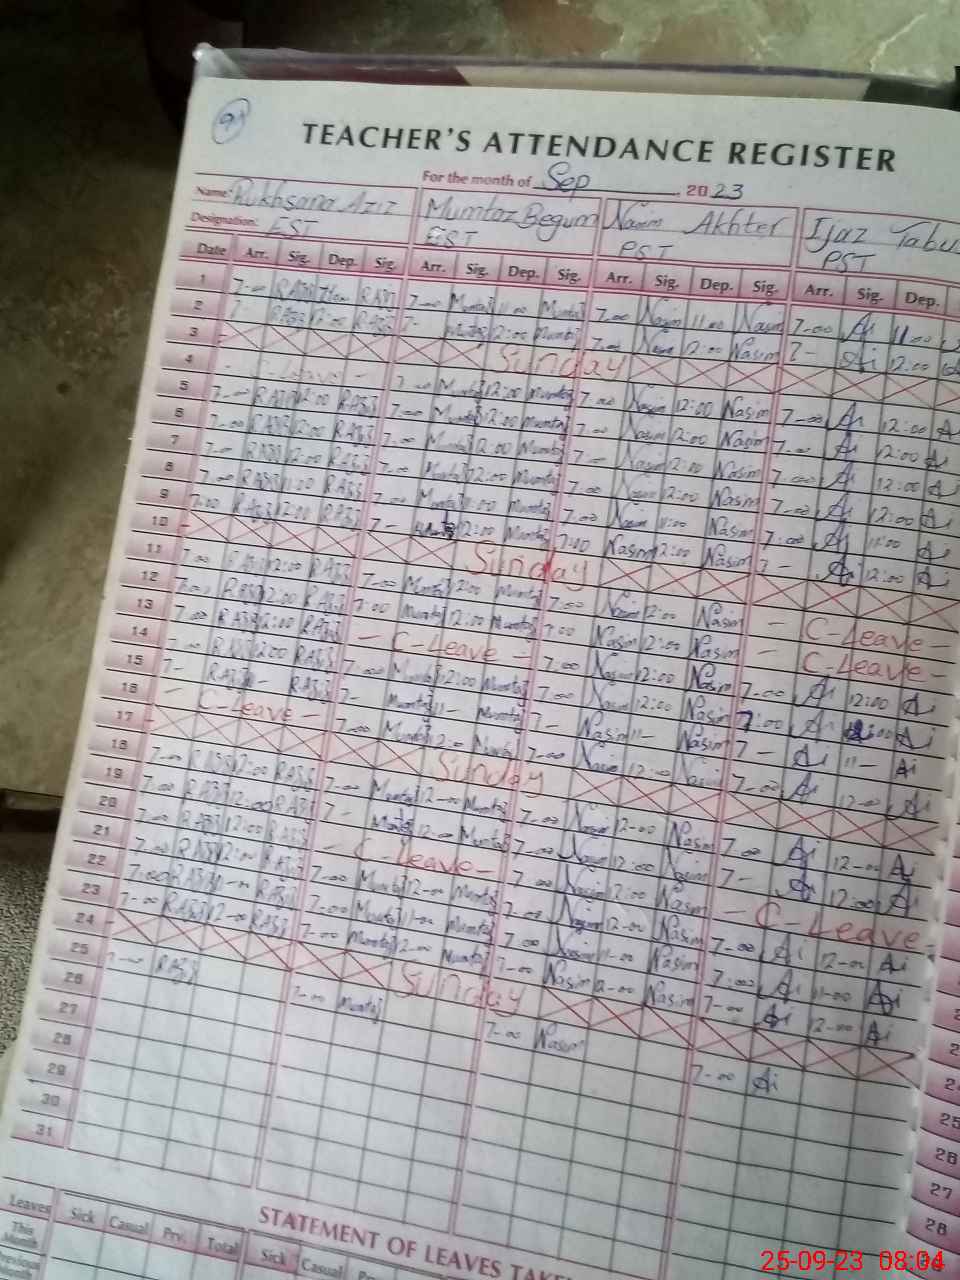 9
TEACHER'S ATTENDANCE REGISTER
For the month of Sep, 2023
Name: Rukhsana Aziz Mumtaz Begum Nasim Akhter Ijaz Tabu
Designation: EST EST PST PST
Date Arr. Sig. Dep. Sig. Arr. Sig. Dep. Sig. Arr. Sig. Dep. Sig. Arr. Sig. Dep.
1 7-00 7-00 Mumtaz 11:00 Mumtaz 7-00 Nasim 11:00 Nasim 7-00 Ai 11:00
2 7- 12:00 7- Mumtaz 12:00 Mumtaz 7-00 Nasim 12:00 Nasim 7- Ai 12:00
3 Sunday
4 - C-Leave - 7-00 Mumtaz 12:00 Mumtaz 7-00 Nasim 12:00 Nasim 7-00 Ai 12:00 Ai
5 7-00 12:00 7-00 Mumtaz 12:00 Mumtaz 7-00 Nasim 12:00 Nasim 7-00 Ai 12:00 Ai
6 7-00 12:00 7-00 Mumtaz 12:00 Mumtaz 7-00 Nasim 12:00 Nasim 7-00 Ai 12:00 Ai
7 7-00 12:00 7-00 Mumtaz 12:00 Mumtaz 7-00 Nasim 12:00 Nasim 7-00 Ai 12:00 Ai
8 7-00 11:00 7-00 Mumtaz 11:00 Mumtaz 7-00 Nasim 11:00 Nasim 7-00 Ai 11:00 Ai
9 7:00 12:00 7- 12:00 Mumtaz 7:00 Nasim 12:00 Nasim 7- Ai 12:00 Ai
10 Sunday
11 7-00 12:00 7-00 Mumtaz 12:00 Mumtaz 7:00 Nasim 12:00 Nasim - C-Leave -
12 7:00 12:00 7:00 Mumtaz 12:00 Mumtaz 7:00 Nasim 12:00 Nasim - C-Leave -
13 7:00 12:00 - C-Leave - 7:00 Nasim 12:00 Nasim 7-00 Ai 12:00 Ai
14 7-00 12:00 7-00 Mumtaz 12:00 Mumtaz 7:00 Nasim 12:00 Nasim 7:00 Ai Ai
15 7- 7- Mumtaz 11- Mumtaz 7- Nasim 11- Nasim 7- Ai 11- Ai
16 - C-Leave - 7-00 Mumtaz Mumtaz 7-00 Nasim 12-00 Nasim 7-00 Ai 12-00 Ai
17 Sunday
18 7-00 12-00 7-00 Mumtaz 12-00 Mumtaz 7-00 Nasim 12-00 Nasim 7-00 Ai 12-00 Ai
19 7-00 12:00 7- Mumtaz 12-00 Mumtaz 7-00 Nasim 12:00 Nasim 7- Ai 12:00 Ai
20 7-00 12:00 - C-Leave - 7-00 Nasim 12:00 Nasim - C-Leave -
21 7-00 12:00 7-00 Mumtaz 12-00 Mumtaz 7-00 Nasim 12-00 Nasim 7-00 Ai 12-00 Ai
22 7:00 11-00 7-00 Mumtaz 11-00 Mumtaz 7:00 Nasim 11-00 Nasim 7:00 Ai 11-00 Ai
23 7-00 12-00 7-00 Mumtaz 12-00 Mumtaz 7-00 Nasim 12-00 Nasim 7-00 Ai 12-00 Ai
24 Sunday
25 7-00 7-00 Mumtaz 7-00 Nasim 7-00 Ai
26
27
28
29
30
31
25
26
27
28
STATEMENT OF LEAVES TAKEN
Leaves Sick Casual Prv. Total Sick Casual
This Month
Previous
25-09-23 08:04